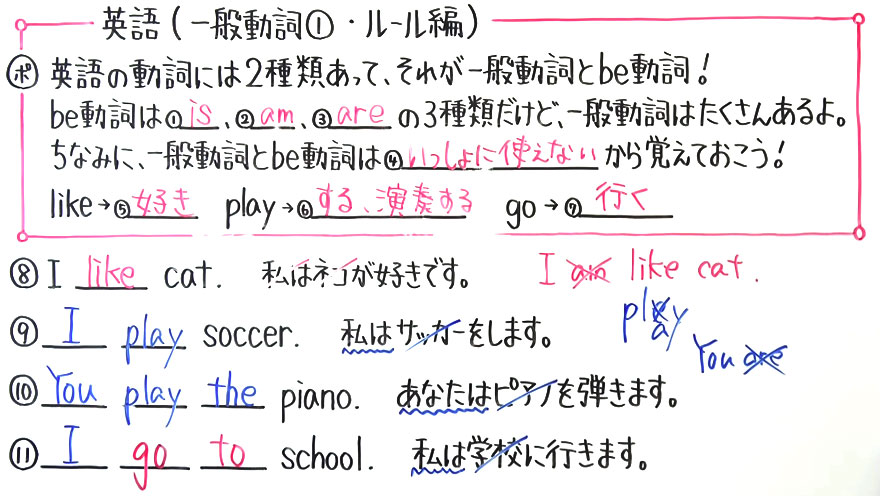 英語(一般動詞①・ルール編)
ポ 英語の動詞には2種類あって、それが一般動詞とbe動詞!
be動詞は①is、②am、③areの3種類だけど、一般動詞はたくさんあるよ。
ちなみに、一般動詞とbe動詞は④いっしょに使えないから覚えておこう!
like→⑤好き play→⑥する、演奏する go→⑦行く
⑧ I like cat. 私はネコが好きです。 I am like cat.
play
⑨ I play soccer. 私はサッカーをします。
You are
⑩ You play the piano. あなたはピアノを弾きます。
⑪ I go to school. 私は学校に行きます。